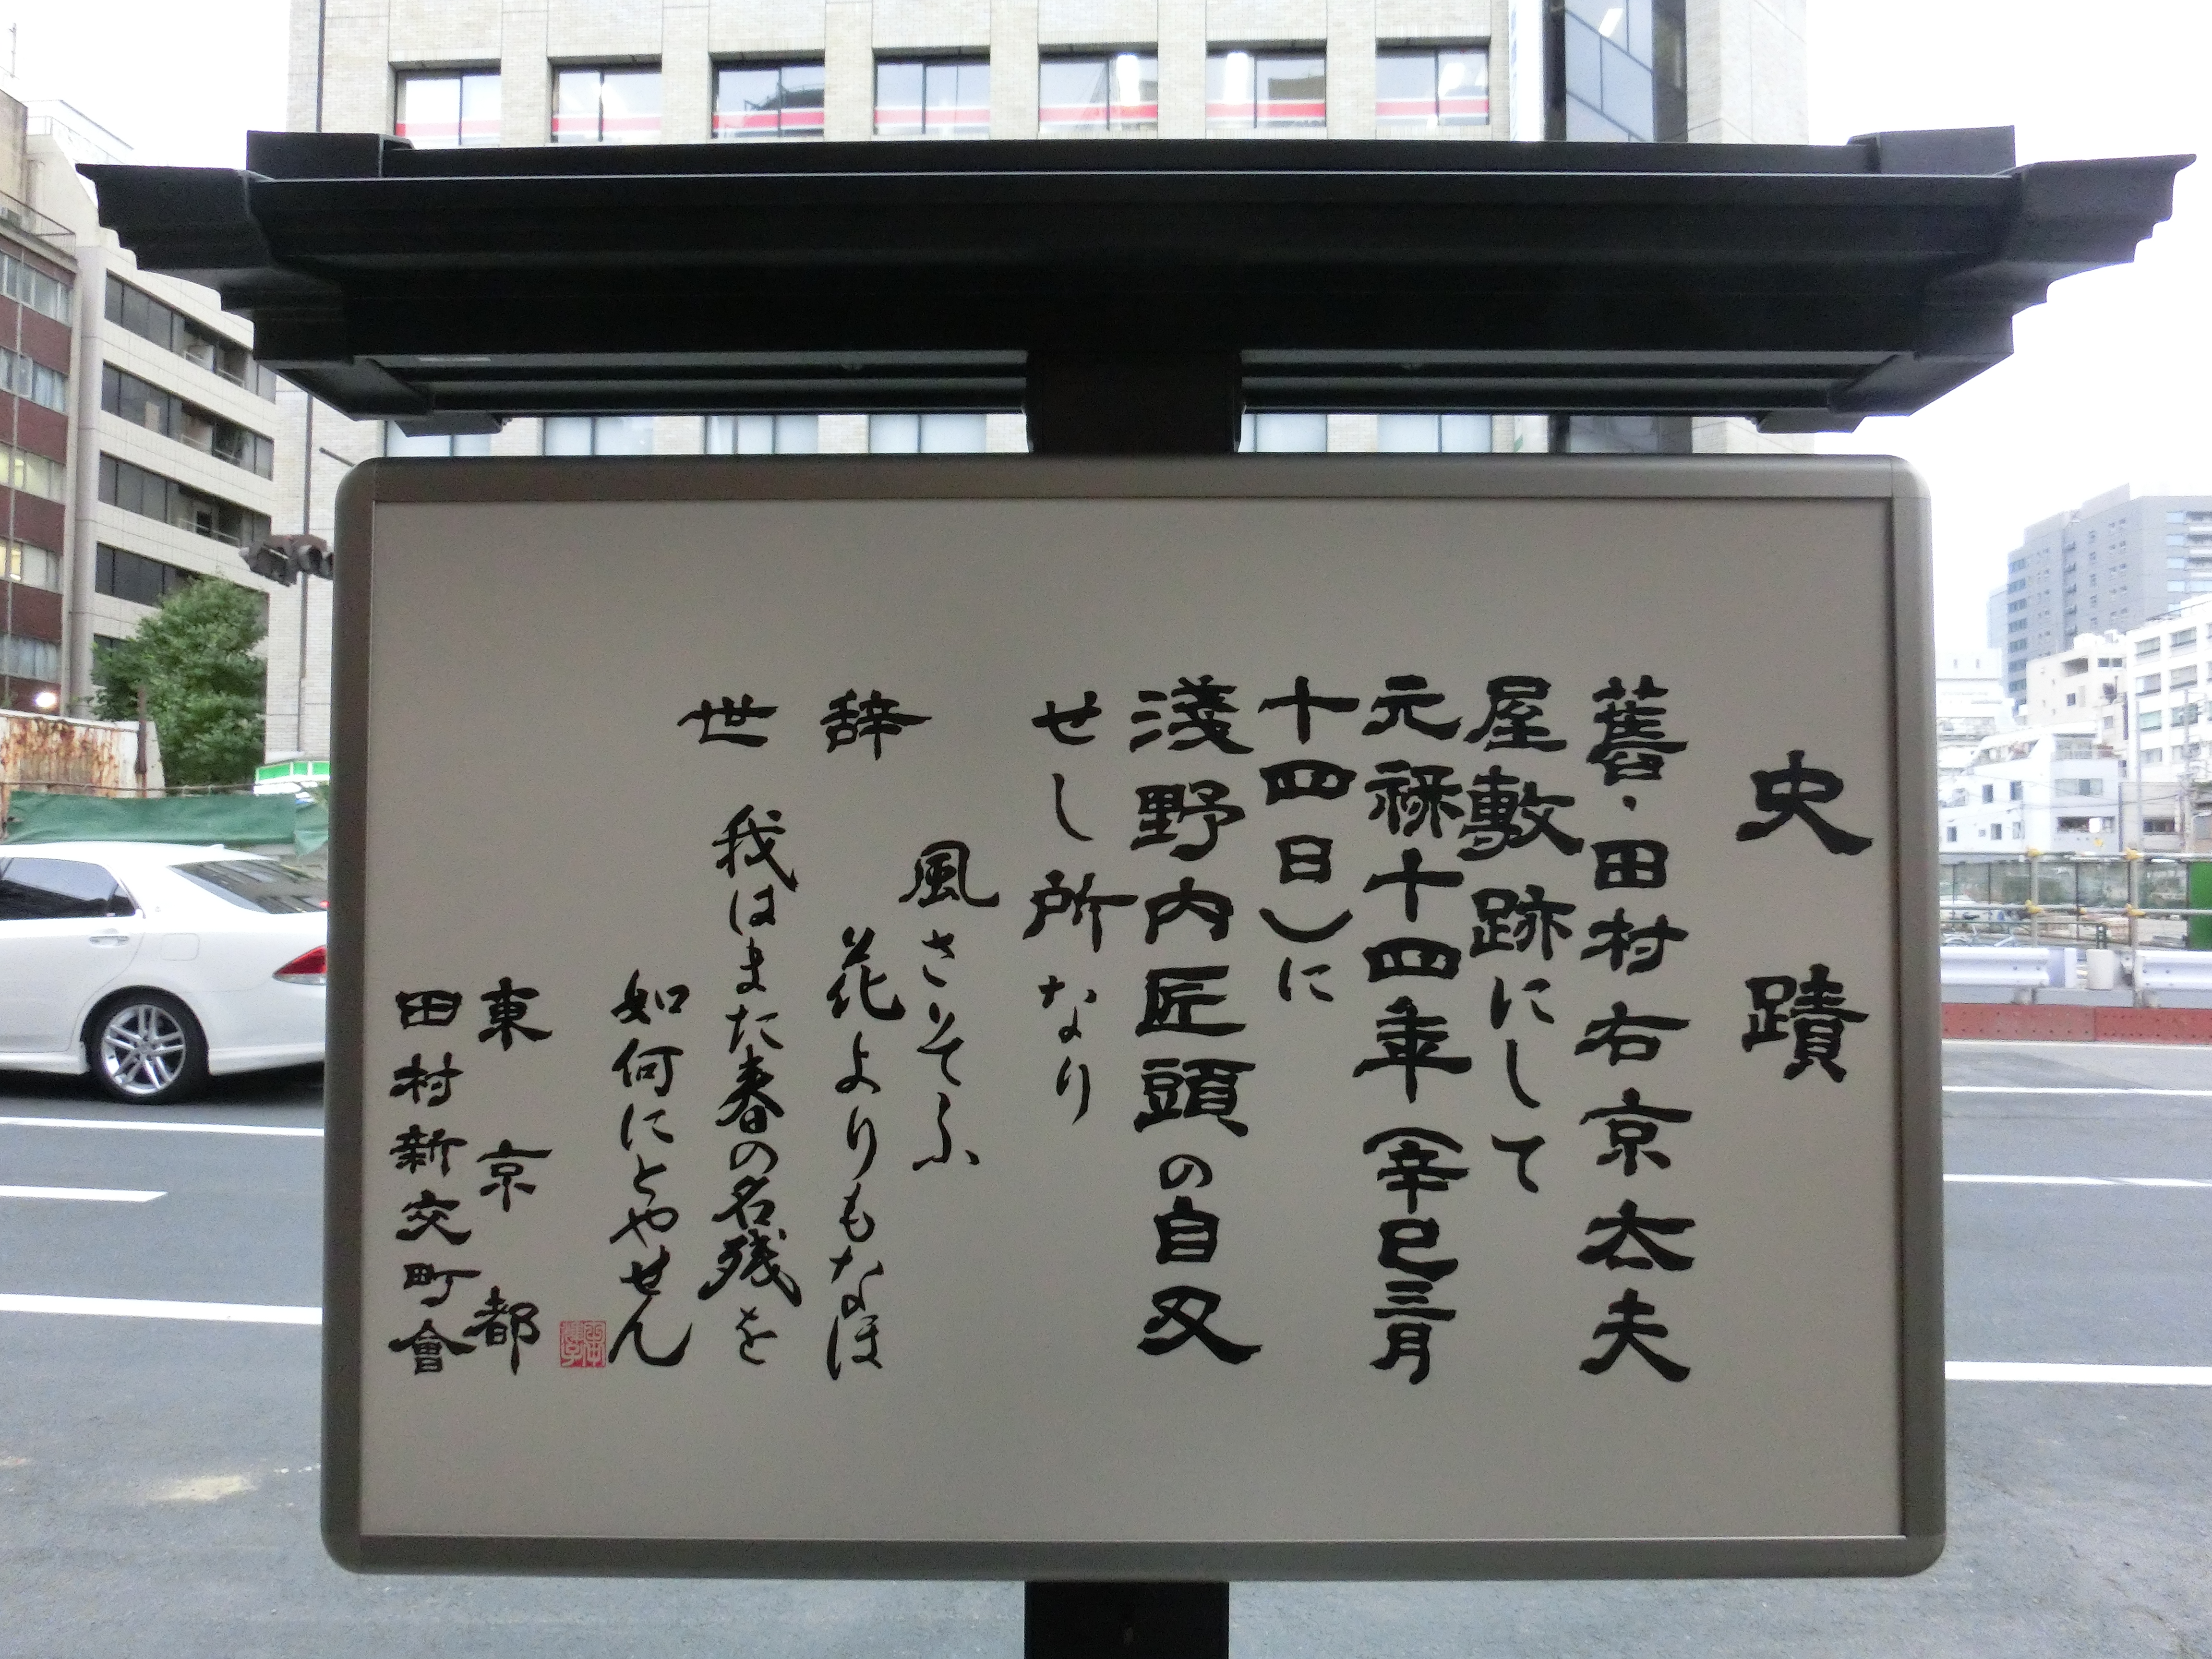 史蹟
舊・田村右京太夫
屋敷跡にして
元禄十四年（辛巳三月
十四日）に
淺野内匠頭の自刃
せし所なり
辞世
風さそふ
花よりもなほ
我はまた春の名残を
如何にとやせん
東京都
田村新交町會